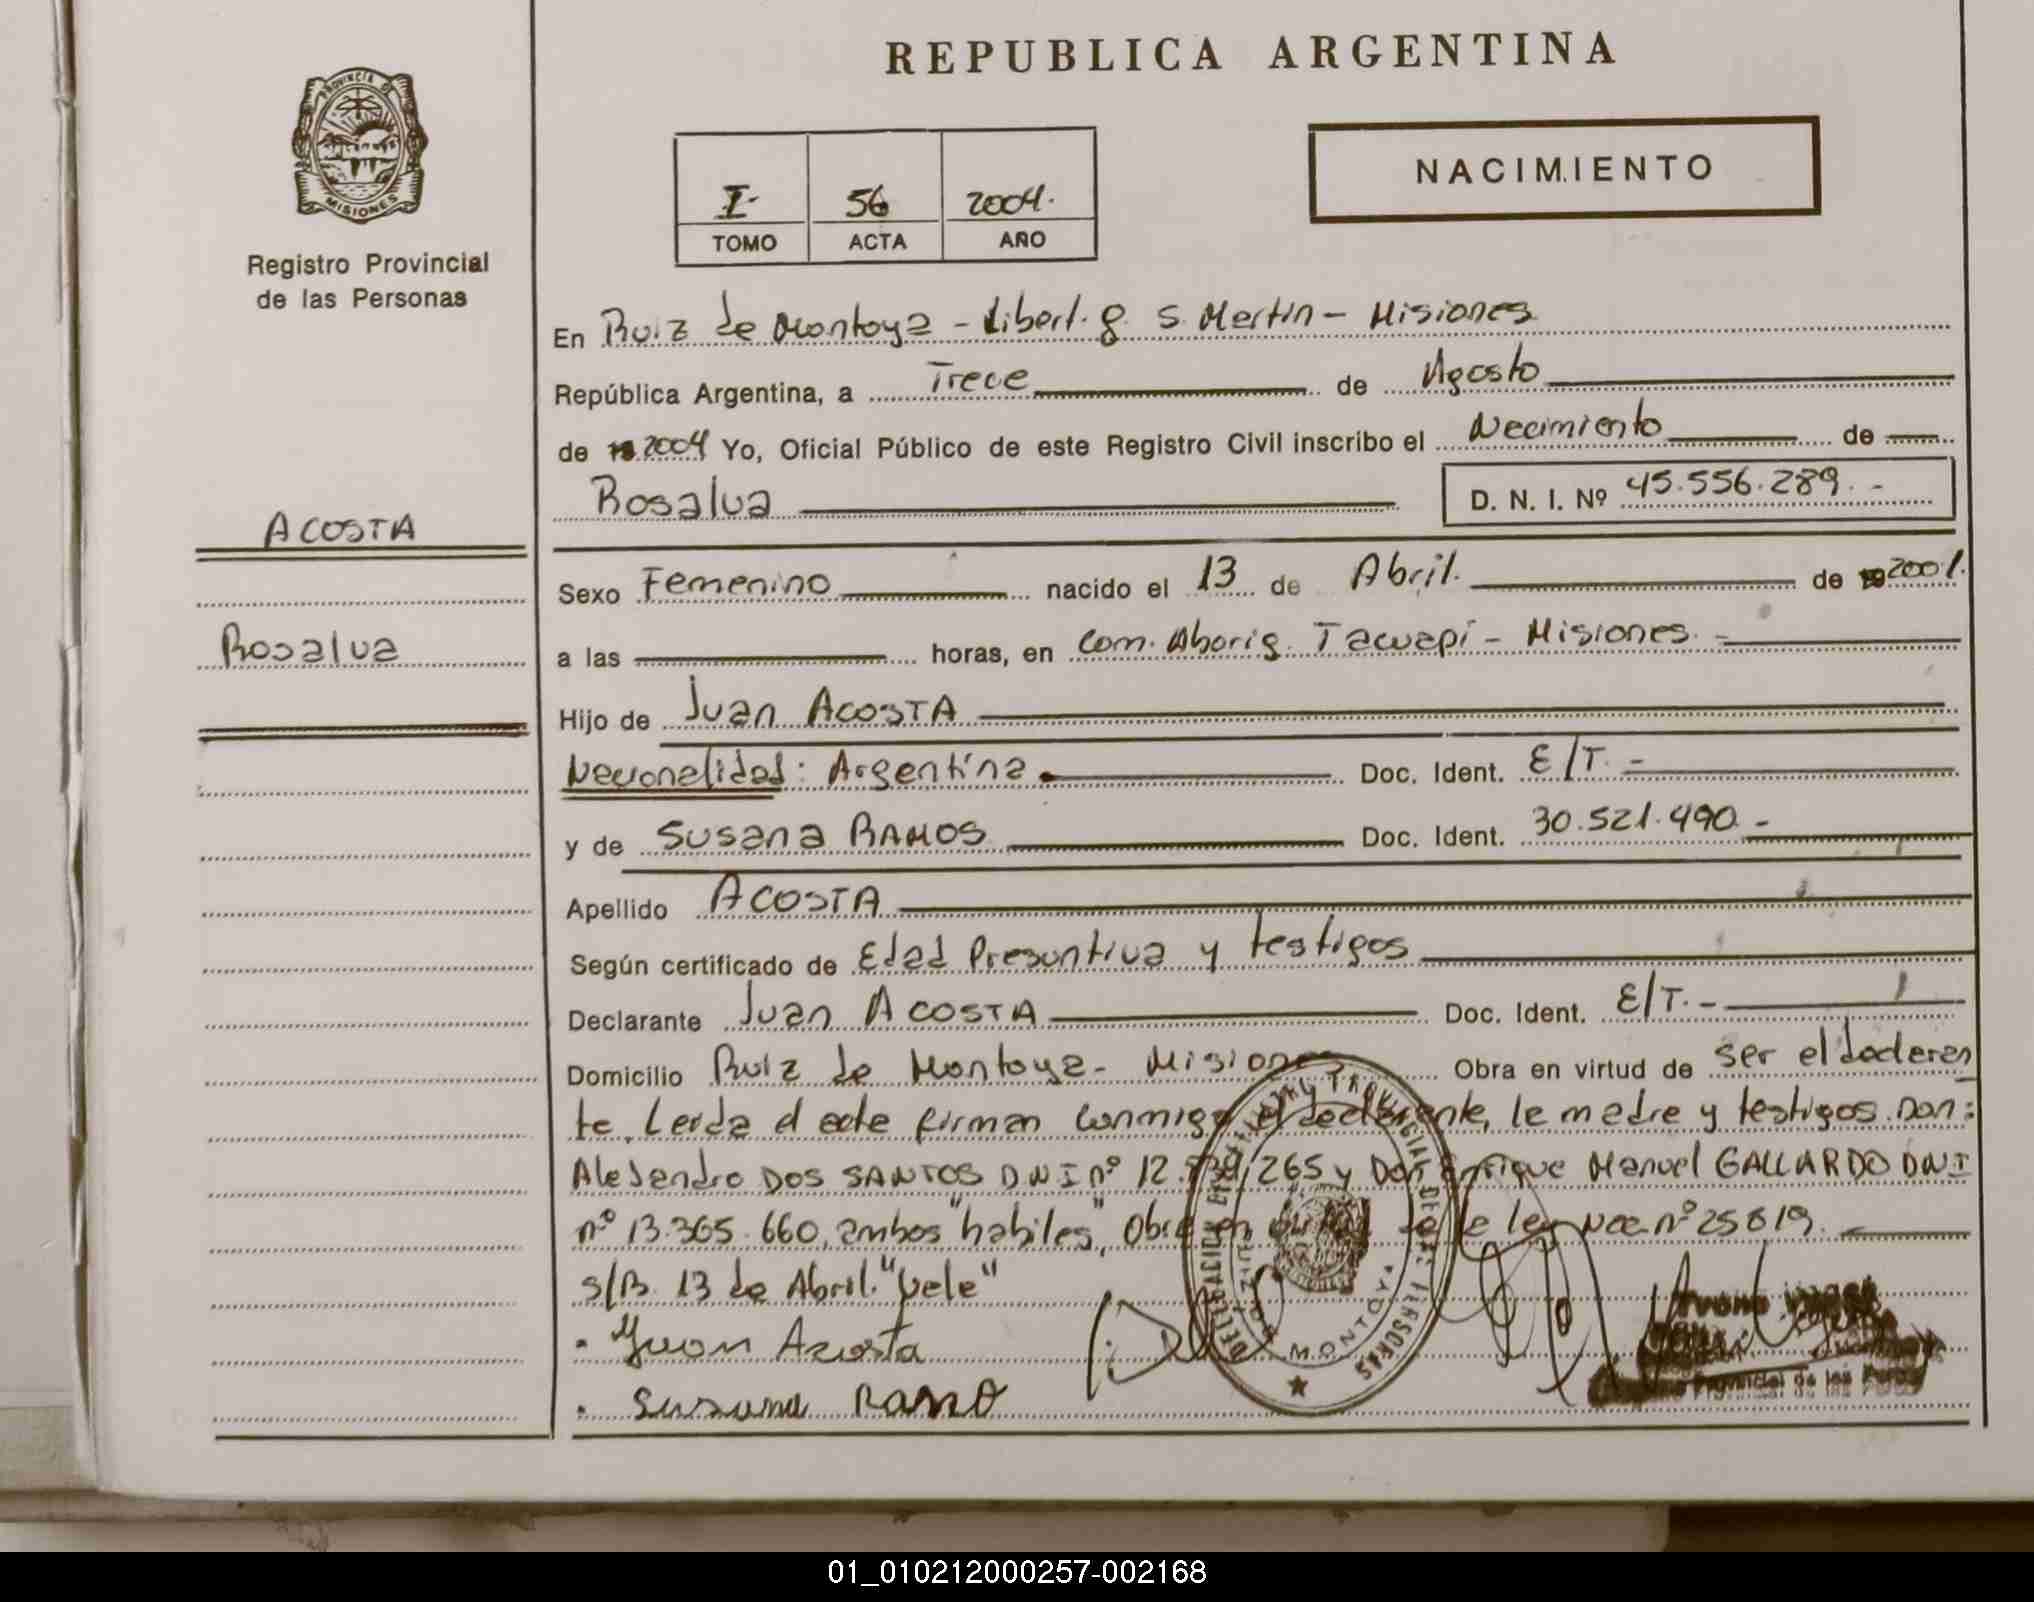 REPUBLICA ARGENTINA
PROVINCIA DE
MISIONES
Registro Provincial
de las Personas
NACIMIENTO
I 56 2004.
TOMO ACTA AÑO
En Ruiz de Montoya - Libert. g. S. Martín - Misiones
República Argentina, a Trece de Agosto
de 19 2004 Yo, Oficial Público de este Registro Civil inscribo el Nacimiento de
Rosalva D. N. I. Nº 45.556.289.-
ACOSTA
Rosalva
Sexo Femenino nacido el 13 de Abril. de 19 2001.
a las horas, en Com. Aborig. Tacuapí - Misiones. -
Hijo de Juan ACOSTA
Nacionalidad: Argentina. Doc. Ident. E/T. -
y de Susana RAMOS Doc. Ident. 30.521.490.-
Apellido ACOSTA
Según certificado de Edad Presuntiva y testigos
Declarante Juan ACOSTA Doc. Ident. E/T. -
Domicilio Ruiz de Montoya - Misiones Obra en virtud de ser el declaran
te. Leida el acta firman conmigo el declarante, la madre y testigos Don:
Alejandro DOS SANTOS DNI nº 12. 265 y Don Enrique Manuel GALLARDO DNI
nº 13.365.660, ambos "habiles", Obra en virtud de la ley Nac. nº 25819.
s/B. 13 de Abril. "Vale"
. Juan Acosta
. Susana Ramo
DELEGACION
PROVINCIAL DE LAS PERSONAS
RUIZ DE MONTOYA
Provincial de las Pers
01_010212000257-002168